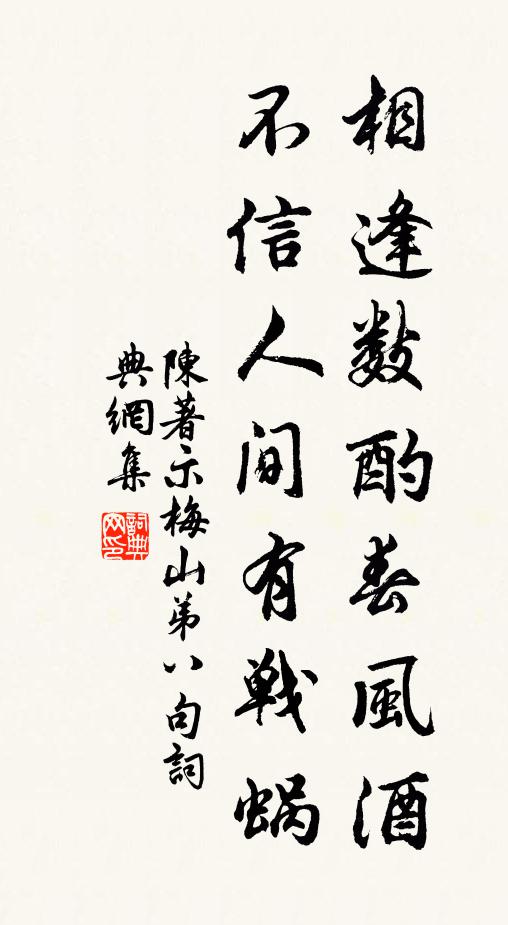 相逢數酌春風酒
不信人间有戰蝸
陳著示梅山弟八句詞
典網集
詞典
网印